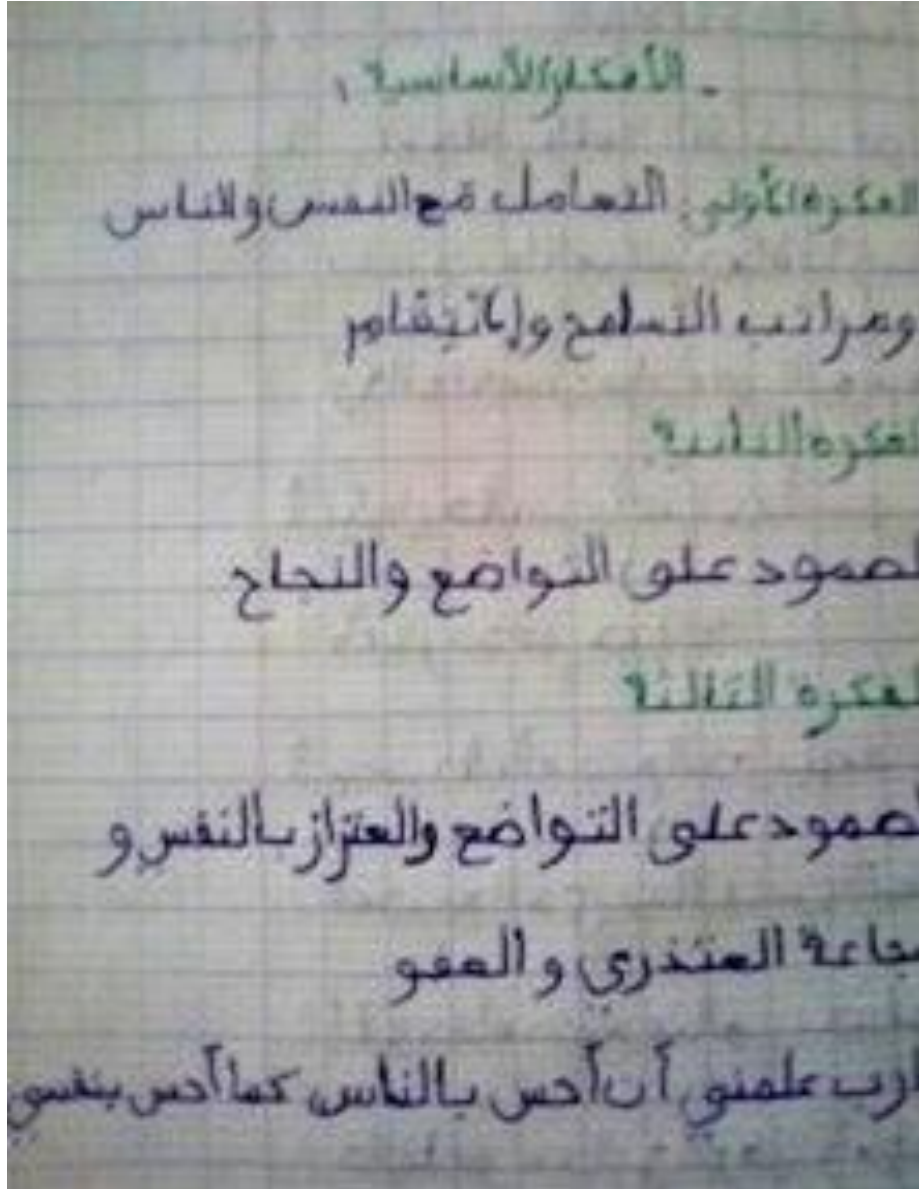 - الأفكار الأساسية:
الفكرة الأولى: التعامل مع النفس والناس
ومراتب التسامح والإنتقام
لفكرة الثانية
لصمود على التواضع والنجاح
لفكرة الثالثة
لصمود على التواضع والعتزاز بالنفس و
جاعة المتذري و العفو
ارب علمني أن أحس بالناس كما أحس بنفسي